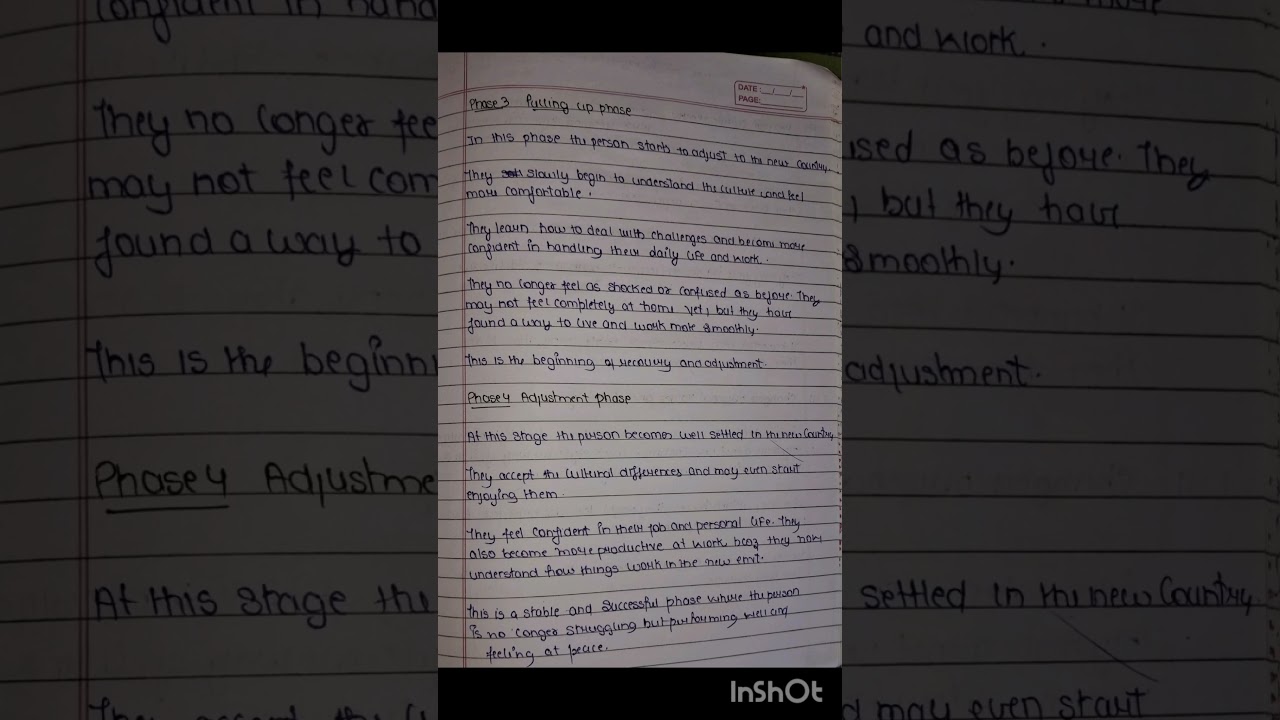 DATE: __/__/__
PAGE:
Phase 3 Pulling up phase
In this phase the person starts to adjust to the new country.
They slowly begin to understand the culture and feel
more comfortable.
They learn how to deal with challenges and become more
confident in handling their daily life and work.
They no longer feel as shocked or confused as before. They
may not feel completely at home yet, but they have
found a way to live and work more smoothly.
This is the beginning of recovery and adjustment.
Phase 4 Adjustment phase
At this stage the person becomes well settled in the new Country
They accept the cultural differences and may even start
enjoying them.
They feel confident in their job and personal life. They
also become more productive at work bcoz they now
understand how things work in the new envt.
This is a stable and successful phase where the person
is no longer struggling but performing well and
feeling at peace.
InShOt